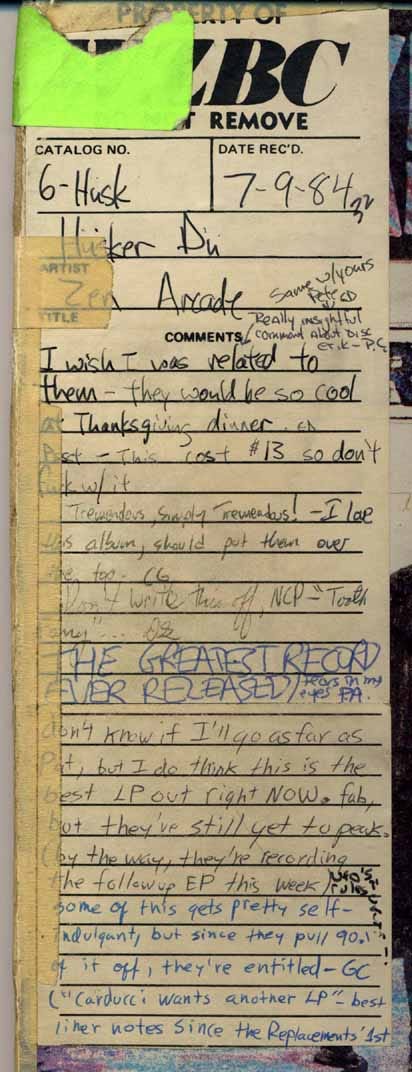 PROPERTY OF
ZBC
T REMOVE
CATALOG NO. DATE REC'D.
6-Hüsk 7-9-84
Hüsker Dü
ARTIST
Zen Arcade
TITLE
Same w/yours
Pete ED
COMMENTS
Really insightful
comment About Disc
Erik - P.G.
I wish I was related to
them - they would be so cool
at Thanksgiving dinner. ED
Best - This cost $13 so don't
fuck w/it
Tremendous, Simply Tremendous! - I love
this album, should put them over
the top - CG
Don't write this off, NCP - "Tooth
THE GREATEST RECORD
EVER RELEASED / tears in my
eyes P.A.
don't know if I'll go as far as
Pat, but I do think this is the
best LP out right NOW. fab,
but they've still yet to peak.
(by the way, they're recording
the followup EP this week)
some of this gets pretty self-
indulgant, but since they pull 90%
of it off, they're entitled - GC
("Carducci wants another LP" - best
liner notes Since the Replacements' 1st